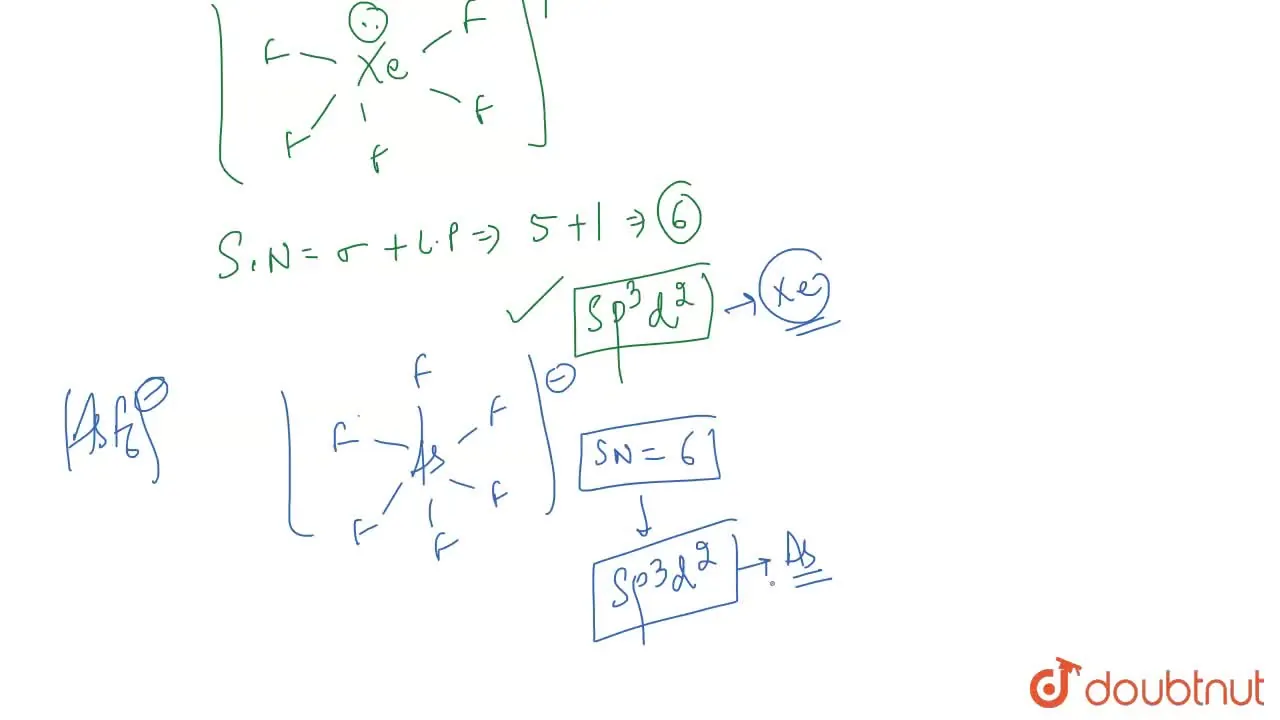 F
Xe
F
F
F
F
S.N = σ + L.P ⇒ 5 + 1 ⇒ 6
✓ Sp³d² → Xe
[AsF₆]⊖
F
⊖
F
As
F
F
F
F
SN = 6
↓
Sp³d² → As
doubtnut